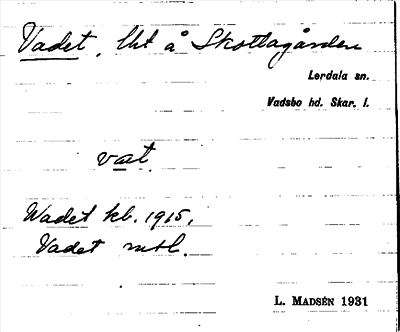 Vadet, lht å Skottagården
Lerdala sn.
Vadsbo hd. Skar. l.
vat
Wadet kb. 1915,
Vadet mtl.
L. Madsén 1931